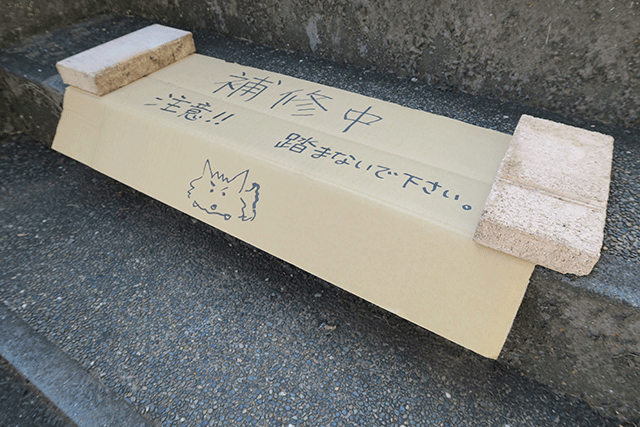 補修中
注意!! 踏まないで下さい。